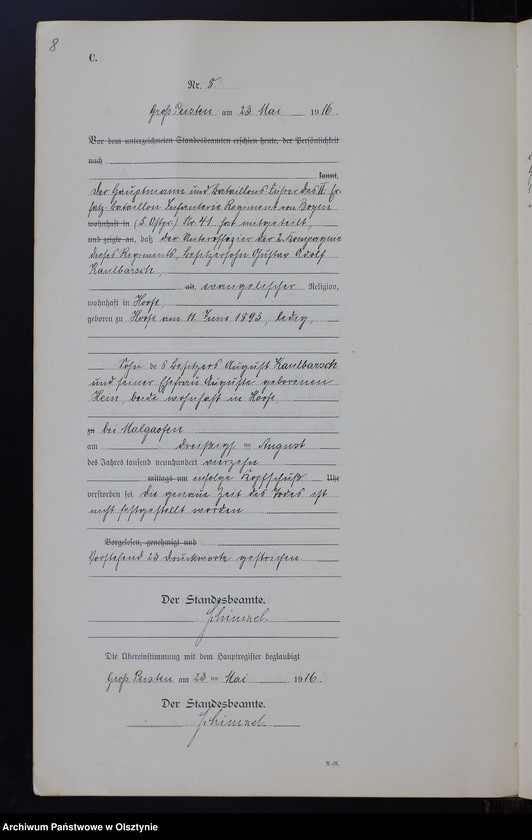 8
C.
Nr. 5
Groß Peisten am 23. Mai 1916.
Vor dem unterzeichneten Standesbeamten erschien heute, der Persönlichkeit
nach
kannt,
Der Hauptmann und Bataillons Führer des II. Er-
satz Bataillon Infanterie Regiment von Boyen
wohnhaft in (5. Ostpr.) Nr. 41 hat mitgeteilt,
und zeigte an, daß der Unteroffizier der 2. Kompagnie
dieses Regiments, Besitzersohn Gustav Adolf
Kaulbarsch,
alt, evangelischer Religion,
wohnhaft in Hoofe,
geboren zu Hoofe am 11. Juni 1893, ledig,
Sohn des Besitzers August Kaulbarsch
und seiner Ehefrau Auguste geborenen
Hein, beide wohnhaft in Hoofe
zu bei Malgaofen
am dreißigsten August
des Jahres tausend neunhundert vierzehn
mittags um infolge Kopfschuß Uhr
verstorben sei. Die genaue Zeit des Todes ist
nicht festgestellt worden.
Vorgelesen, genehmigt und
Vorstehend 23 Druckworte gestrichen.
Der Standesbeamte.
Schimmel
Die Übereinstimmung mit dem Hauptregister beglaubigt
Groß Peisten am 23 ten Mai 1916.
Der Standesbeamte.
Schimmel
Archiwum Państwowe w Olsztynie